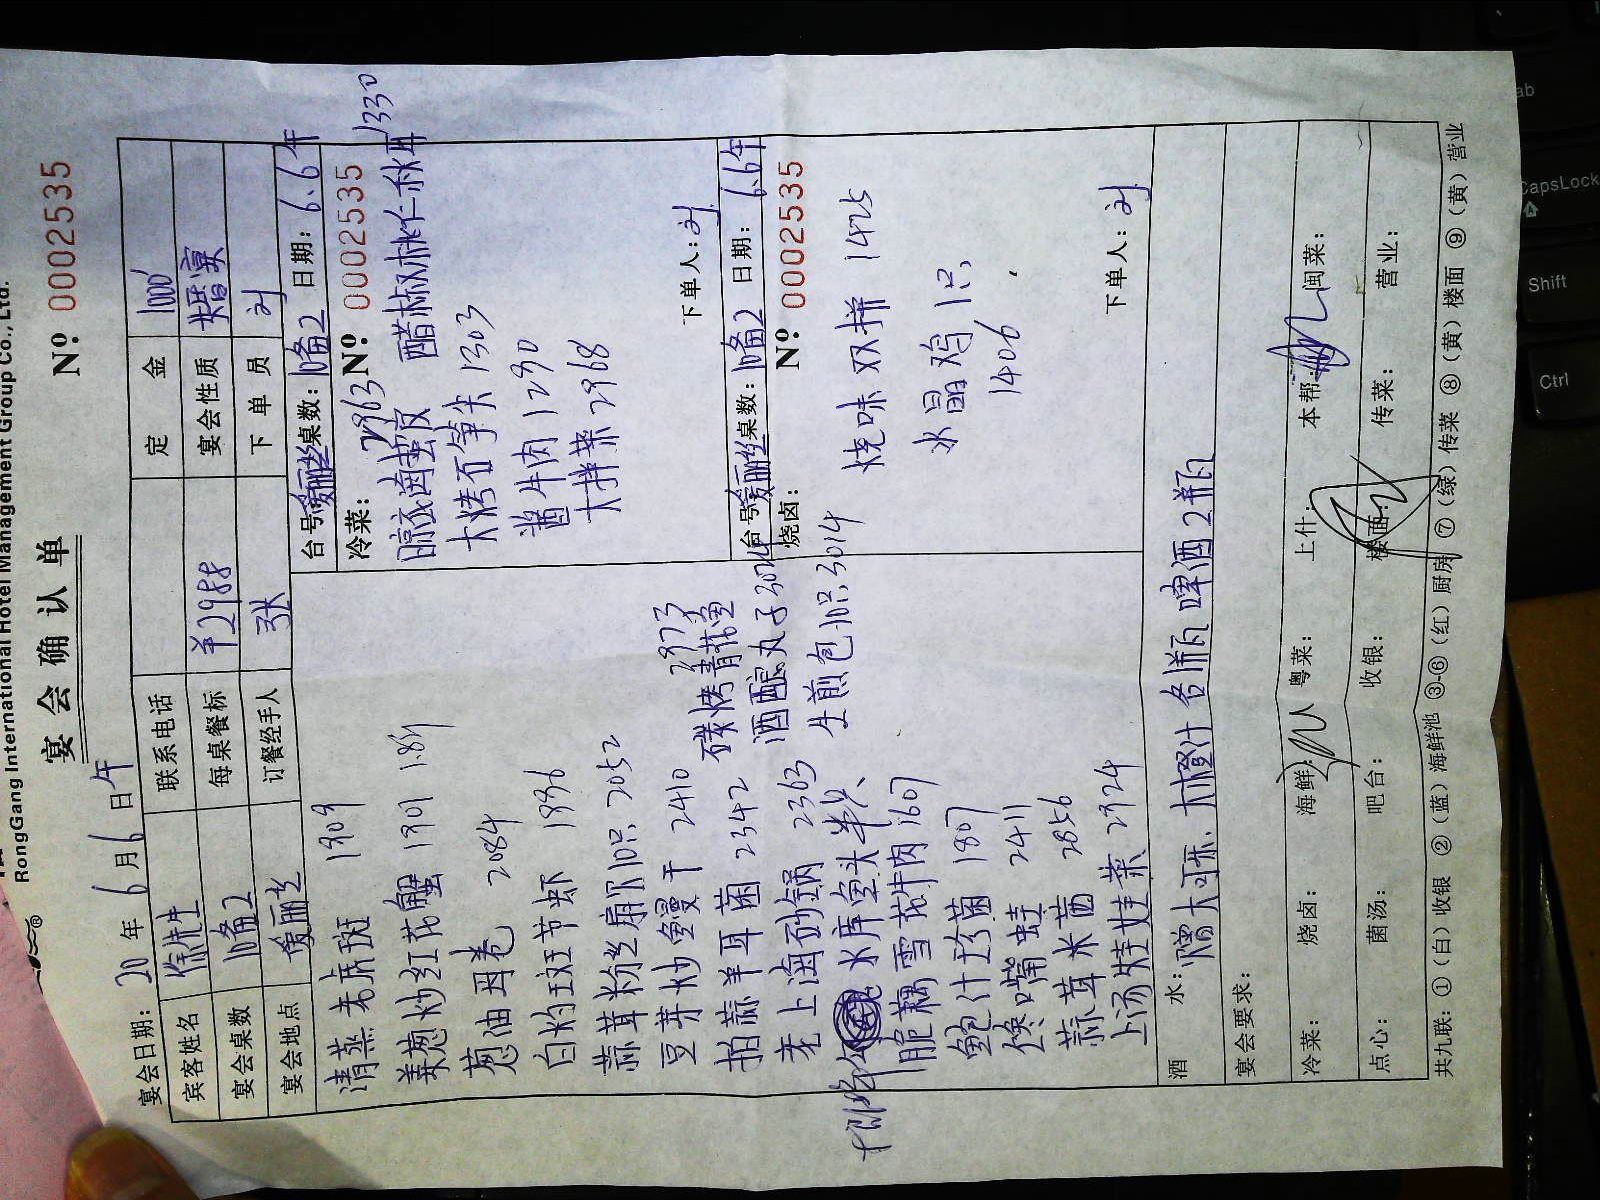 RongGang International Hotel Management Group Co., Ltd.
宴会确认单
№ 0002535
宴会日期：20 年 6月6日午
宾客姓名 徐先生 联系电话 定金 1000
宴会桌数 10备2 每桌餐标 ¥2988 宴会性质 婚宴
宴会地点 爱丽丝 订餐经手人 张 下单员 刘
清蒸老虎斑 1909
姜葱炒红花蟹 1901
葱油
2084
白灼斑节虾 1886
蒜茸粉丝扇贝10只 2052
豆芽炒鳗干 2410
拍蒜羊耳菌 2342
老上海砂锅 2363
水库鱼头半只
脆藕雪花牛肉 1607
鲍汁珍菌 1807
馋嘴蛙 2411
蒜茸米苋 2856
上汤娃娃菜 2924
碳烤青花鱼 2973
酒酿丸子
生煎包10只 3014
台号：爱丽丝 桌数：10备2 日期：6.6午
冷菜：
№ 0002535
卤蛰皮 2963
醋椒桃仁秋耳 1330
大烤石笋尖 1303
酱牛肉 1290
大拌菜 2968
下单人：刘
台号：爱丽丝 桌数：10备2 日期：6.6午
烧卤：
№ 0002535
烧味双拼 1425
水晶鸡1只
1406
下单人：刘
酒水：赠大可乐、大橙汁各1瓶 啤酒2瓶
宴会要求：
冷菜： 烧卤： 海鲜： 粤菜： 上什： 本帮： 闽菜：
点心： 菌汤： 吧台： 收银： 楼面： 传菜： 营业：
共九联：①（白）收银 ②（蓝）海鲜池 ③-⑥（红）厨房 ⑦（绿）传菜 ⑧（黄）楼面 ⑨（黄）营业
ab
CapsLock
Shift
Ctrl